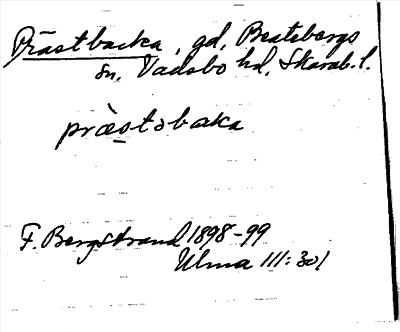 Prästbacka, gd, Beatebergs
sn, Vadsbo hd, Skarab. l.
præstəbaka
F. Bergstrand 1898-99
Ulma 111:301